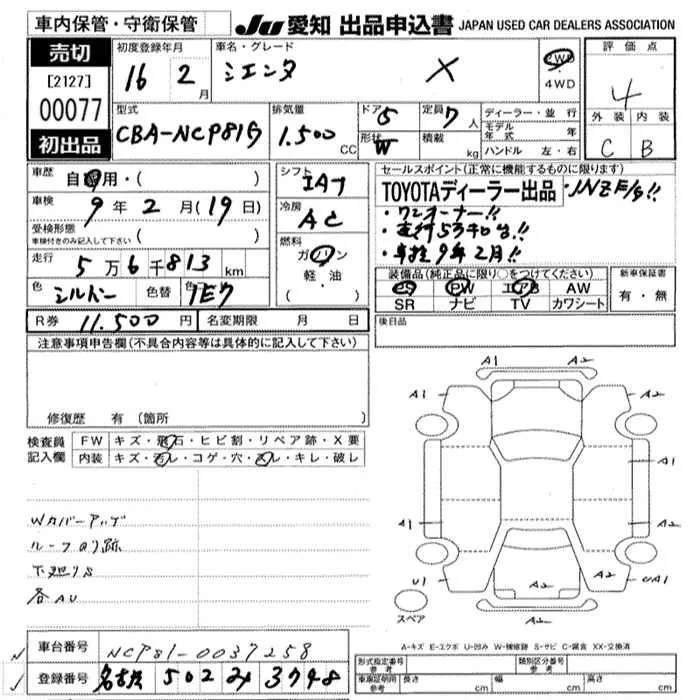 車内保管・守衛保管
JU 愛知 出品申込書 JAPAN USED CAR DEALERS ASSOCIATION
売切
[2127]
00077
初出品
初度登録年月
16 2月
車名・グレード
シエンタ X
2WD
・
4WD
評価点
4
外装 内装
C B
型式
CBA-NCP81G
排気量
1.500 CC
ドア 5
形状 W
定員 7人
積載 kg
ディーラー・並行
モデル年式 年
ハンドル 左・右
車歴
自家用・( )
車検 9年 2月(19日)
受検形態
車検付きのみ記入して下さい ( )
走行 5万6千813km
色 シルバー 色替 1E7
シフト
IAT
冷房
AC
燃料
ガソリン
軽・油
( )
セールスポイント(正常に機能するものに限ります)
TOYOTAディーラー出品
・1NZE/g!!
・ワンオーナー!!
・車検9年2月!!
装備品(純正品に限り○をつけてください)
PS PW エアB AW
SR ナビ TV カワシート
新車保証書
有・無
R券 11.500円 名変期限 月 日
後日品
注意事項申告欄(不具合内容等は具体的に記入して下さい)
修復歴 有(箇所
検査員
記入欄
FW キズ・飛石・ヒビ割・リペア跡・X要
内装 キズ・汚レ・コゲ・穴・スレ・キレ・破レ
Wカバーアゲ
ルーフのり跡
下廻りS
各AU
A1 A2
A1 A2
A1
A1 A2 A1
U1 A2 UA1
A2
スペア
A-キズ E-エクボ U-凹み W-補修跡 S-サビ C-腐食 XX-交換済
車台番号 NCP81-0037258
登録番号 名古屋 502 3748
形式指定番号
参考
類別区分番号
参考
車庫証明用
参考
長さ cm 幅 cm 高さ cm